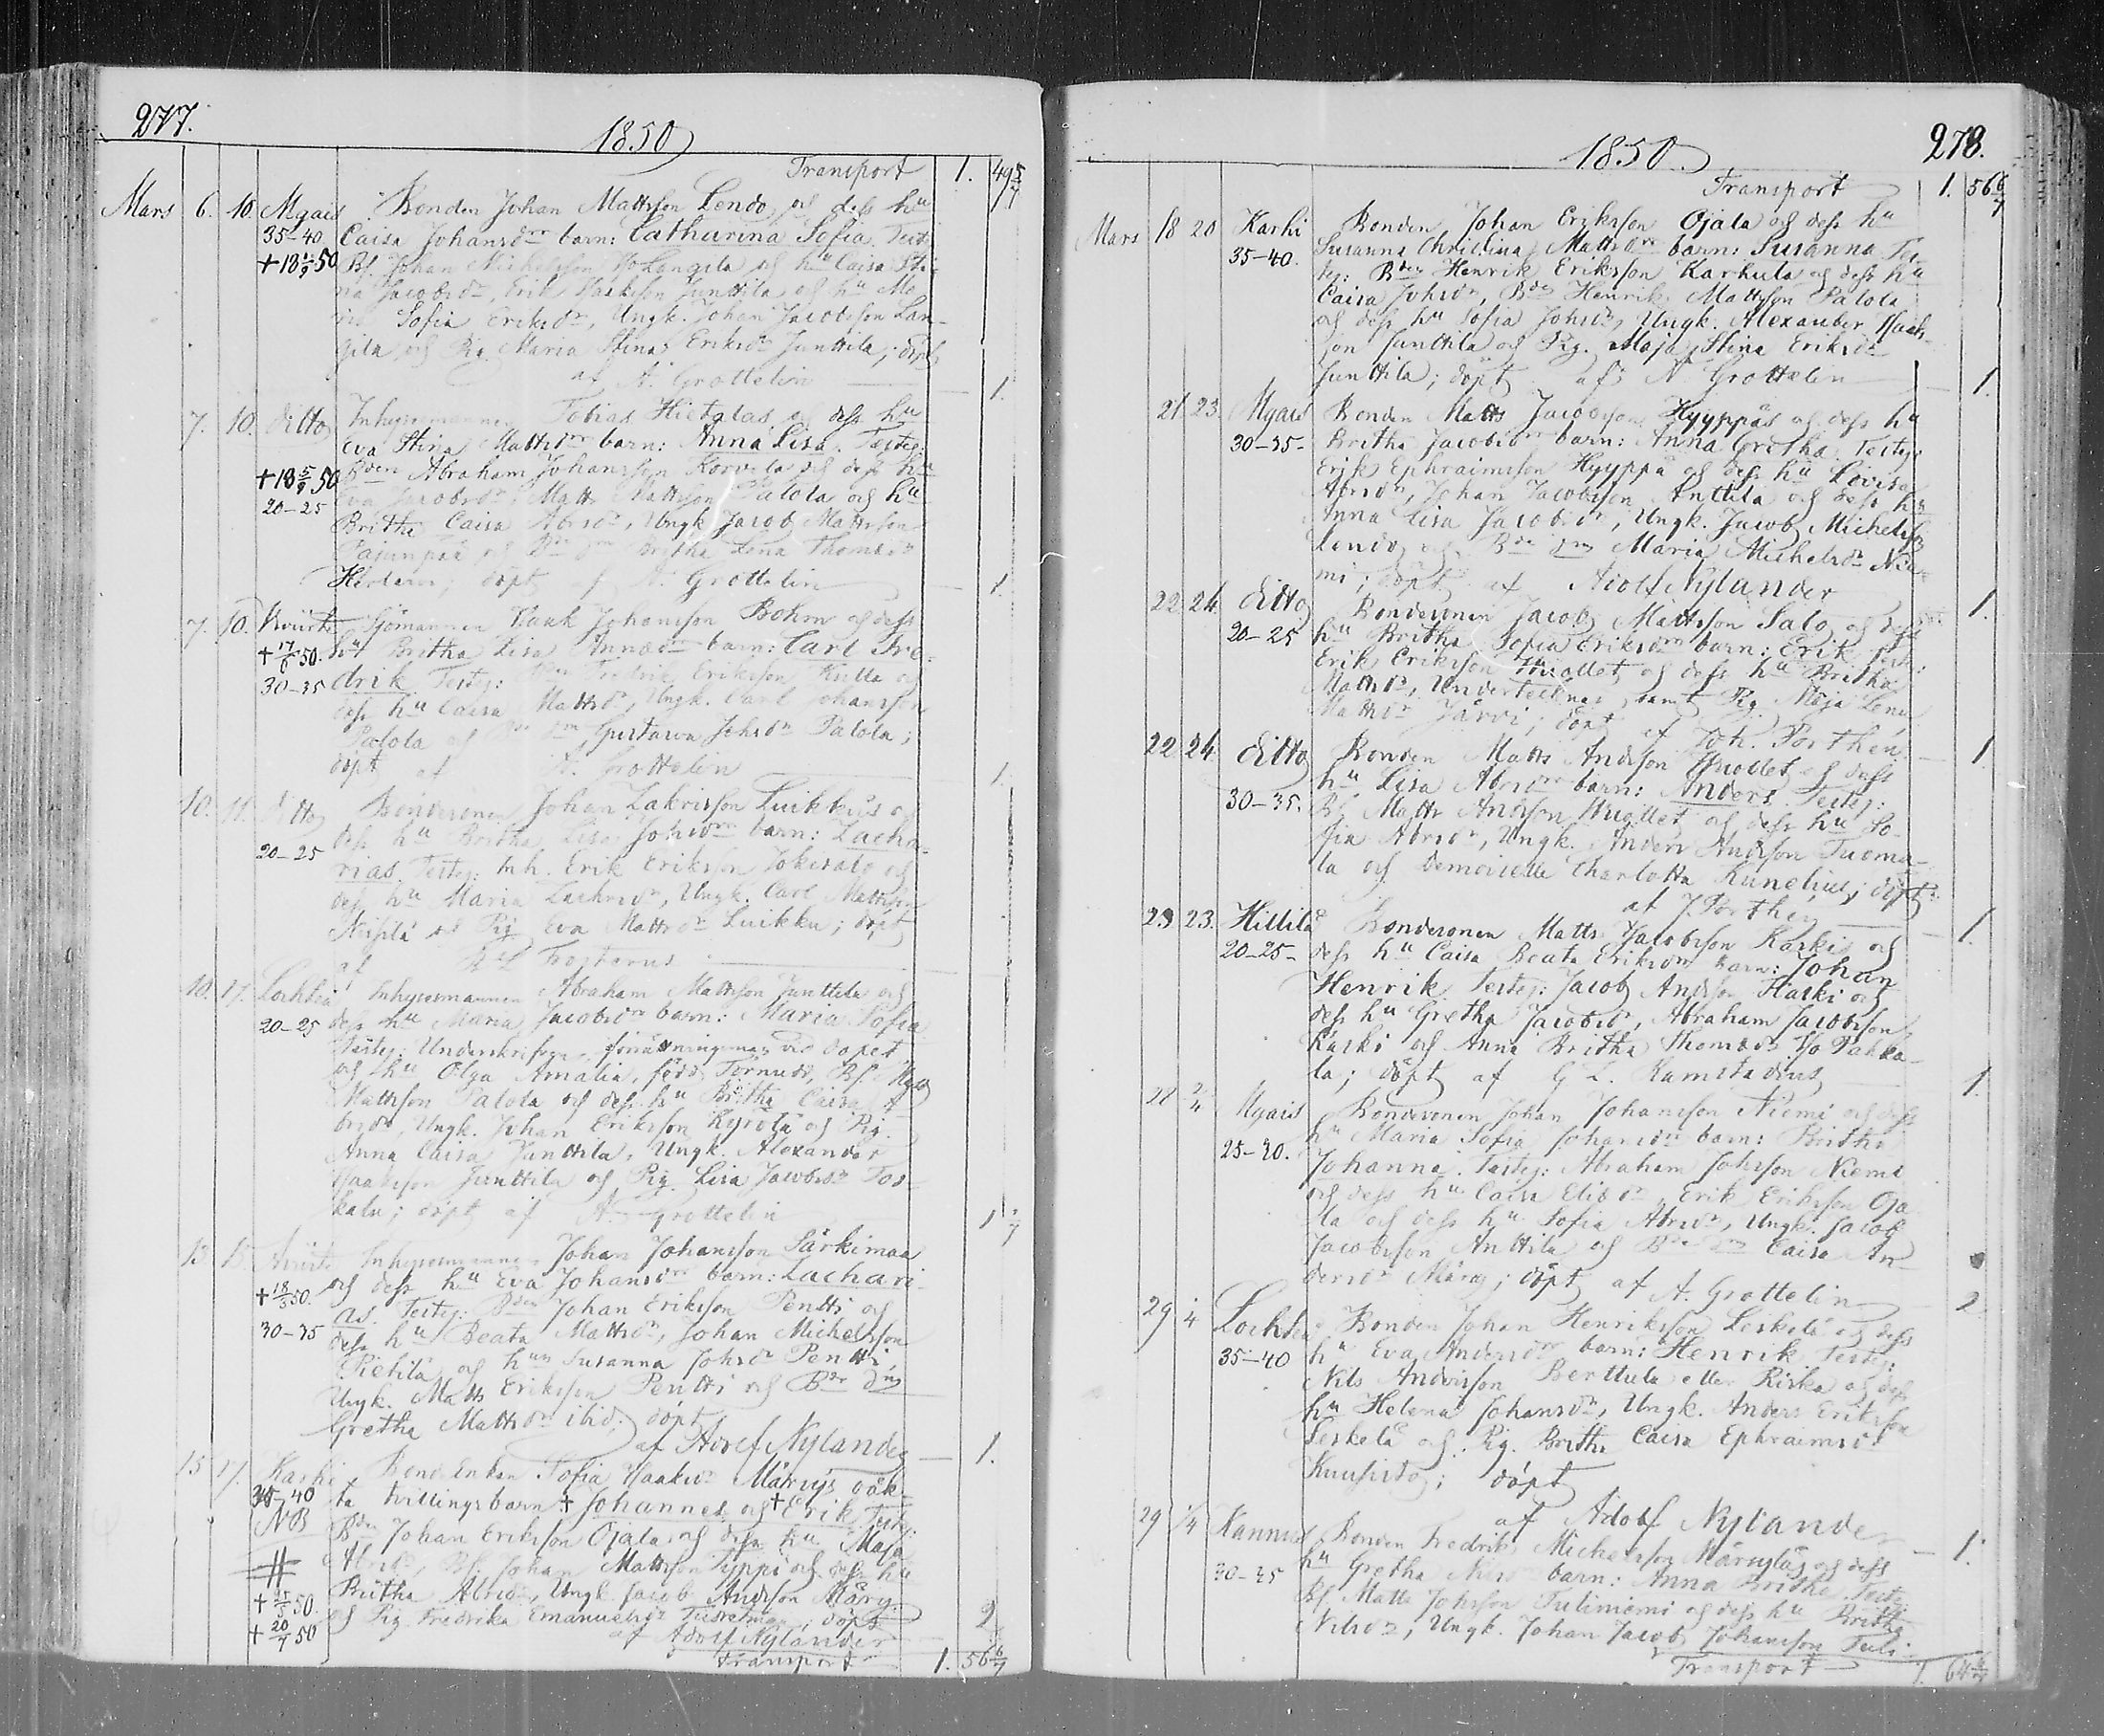 277.
1850
Transport 1. 49 5/7
Mars 6. 10. Mgais Bonden Johan Mattsson Lendo och dess hu
35-40 Caisa Johansdr barn: Catharina Sofia. Test:
+18 /9 50 Bf. Johan Michelsson och hu Caisa Sti-
na Jacobsdr, Erik Isaksson Junttila och hu Ma-
ria Sofia Eriksdr, Ungk. Johan Jacobsson Lan-
gila och Pig. Maria Stina Eriksdr Junttila; döpt
af A. Grottelin 1.
7. 10. ditto Inhysesmannen Tobias Hietalas och dess hu
Eva Stina Mattsdr barn: Anna Lisa. Testes:
+18 5/9 50 Bden Abraham Johansson Korvela och dess hu
20-25 Eva Jacobsdr, Matts Mattsson Palola och hu
Britha Caisa Abrsdr, Ungk. Jacob Mattsson
Pajunpää och Bdr dm Britha Lena Thomsdr
döpt af A. Grottelin 1.
7. 10. Sjömannen Isaak Johansson Bohm och dess
+17/6 50. hu Britha Lisa Annasdr barn: Carl Fre-
30-35 drik. Testes: Bdn Fredrik Eriksson Kutta och
dess hu Caisa Mattsdr, Ungk. Carl Johansson
Palola och Bdr dm Gustava Johsdr Palola;
döpt af A. Grottelin 1.
10. 11. ditto Bondesonen Johan Zakrisson Luikku och
20-25 dess hu Britha Lisa Johsdr barn: Zacha-
rias. Testes: Inh. Erik Eriksson Jokisalo och
dess hu Maria Zachrsdr, Ungk. Carl Mattsson
och Pig Eva Mattsdr Luikku; döpt
af Frosterus
10. 17. Lochteå Inhysesmannen Abraham Mattsson Junttila och
20-25 dess hu Maria Jacobsdr barn: Maria Sofia
Testes: Underskrifven, förrättningsman vid dopet
och hu Olga Amalia, född Törnudd, Bf. Matts
Mattsson Palola och dess hu Britha Caisa A-
brsdr, Ungk. Johan Eriksson Kyrölä och Pig.
Anna Caisa Junttila, Ungk. Alexander
Isaaksson Junttila och Pig. Lisa Jacobsdr Tos-
kala; döpt af A. Grottelin 1 /7
13 15. Inhysesmannen Johan Johansson Särkimaa
+18/5 50. och dess hu Eva Johansdr barn: Zachari-
30-35 as. Testes: Bden Johan Eriksson Pentti och
dess hu Beata Mattsdr, Johan Michelsson
Pietilä och hun Susanna Johsdr Pentti,
Ungk. Matts Eriksson Pentti och Bdr dm
Gretha Mattsdr ibid; döpt
af Adolf Nylander 1.
15 17. Karhi Bond Enkan Sofia Isaksdr Märsys oäk-
35-40 ta tvillingsbarn + Johannes och + Erik Testes
NB Bdn Johan Eriksson Ojala och dess hu Maja
Abrsdr, Bf. Johan Mattsson Typpi och dess hu
+ 25/5 50. Britha Abrsdr, Ungk. Jacob Andsson Märsy
+ 20/7 50 och Pig Fredrika Emanuelsdr döpt 2
af Adolf Nylander
Transport 1. 56 6/7
278.
1850.
Transport 1. 56 6/7
Mars 18 20 Karhi Bonden Johan Eriksson Ojala och dess hu
35-40. Susanna Christina Mattsdr barn: Susanna Tes-
tes: Bden Henrik Eriksson Karhula och dess hu
Caisa Johsdr, Bdn Henrik Mattsson Palola
och dess hu Sofia Johsdr, Ungk. Alexander Isaaks-
son Junttila och Pig. Maja Stina Eriksdr
Junttila; döpt af A. Grottelin 1.
21. 23. Mgais Bonden Matts Jacobsson Hyyppäs och dess hu
30-35- Britha Jacobsdr barn: Anna Gretha. Testes:
Erik Ephraimsson Hyyppä och dess hu Lovisa
Abrsdr, Johan Jacobsson Anttila och dess hu
Anna Lisa Jacobsdr, Ungk. Jacob Michelsson
Lendo och Bdr dm Maria Michelsdr Nie-
mi; döpt af Adolf Nylander
22 24. ditto Bondesonen Jacob Mattsson Salo och dess 1.
20-25 hu Britha Sofia Eriksdr barn: Erik Testes:
Erik Eriksson Huollet och dess hu Britha
Mattsdr, Undertecknad, samt Pig. Maja Lena
Mattsdr Järvi; döpt af Joh. Porthén
22 24. ditto Bonden Matts Andsson Huollet och dess 1
30-35. hu Lisa Abrsdr barn: Anders. Testes:
Bf. Matts Andsson Huollet och dess hu So-
fia Abrsdr, Ungk. Anders Andsson Tuoma-
la och Demoiselle Charlotta Kunelius; döpt
af J. Porthén 1.
23 23. Hillilä Bondesonen Matts Jacobsson Karhi och
20-25- dess hu Caisa Beata Eriksdr barn: Johan
Henrik Testes: Jacob Andsson Karhi och
dess hu Gretha Jacobsdr, Abraham Jacobsson
Karhi och Anna Britha Thomasdr Pahka-
la; döpt af G. L. Ramstadius 1.
28 2/4 Mgais Bondesonen Johan Johansson Niemi och dess
25-30. hu Maria Sofia Johansdr barn: Britha
Johanna. Testes: Abraham Johsson Niemi
och dess hu Caisa Eliasdr, Erik Eriksson Oja-
la och dess hu Sofia Abrsdr, Ungk. Jacob
Jacobsson Anttila och Bdr dm Caisa An-
dersdr Märsy; döpt af A. Grottelin 2
29 1/4 Lochteå Bonden Johan Henriksson Leskelä och dess
35-40 hu Eva Andersdr barn: Henrik Testes:
Nils Andersson Berttula eller Riska och dess
hu Helena Johansdr, Ungk. Anders Eriksson
Leskelä och Pig. Britha Caisa Ephraimsdr
Kuusisto; döpt
af Adolf Nylander
29 1/4 Kannus Bonden Fredrik Michelsson Märsylä och dess 1.
30-35 hu Gretha Nilsdr barn: Anna Britha. Testes:
Bf. Matts Johsson Tuliniemi och dess hu Britha
Nilsdr, Ungk. Johan Jacob Johansson Tuli-
Transport 1. 64 6/7